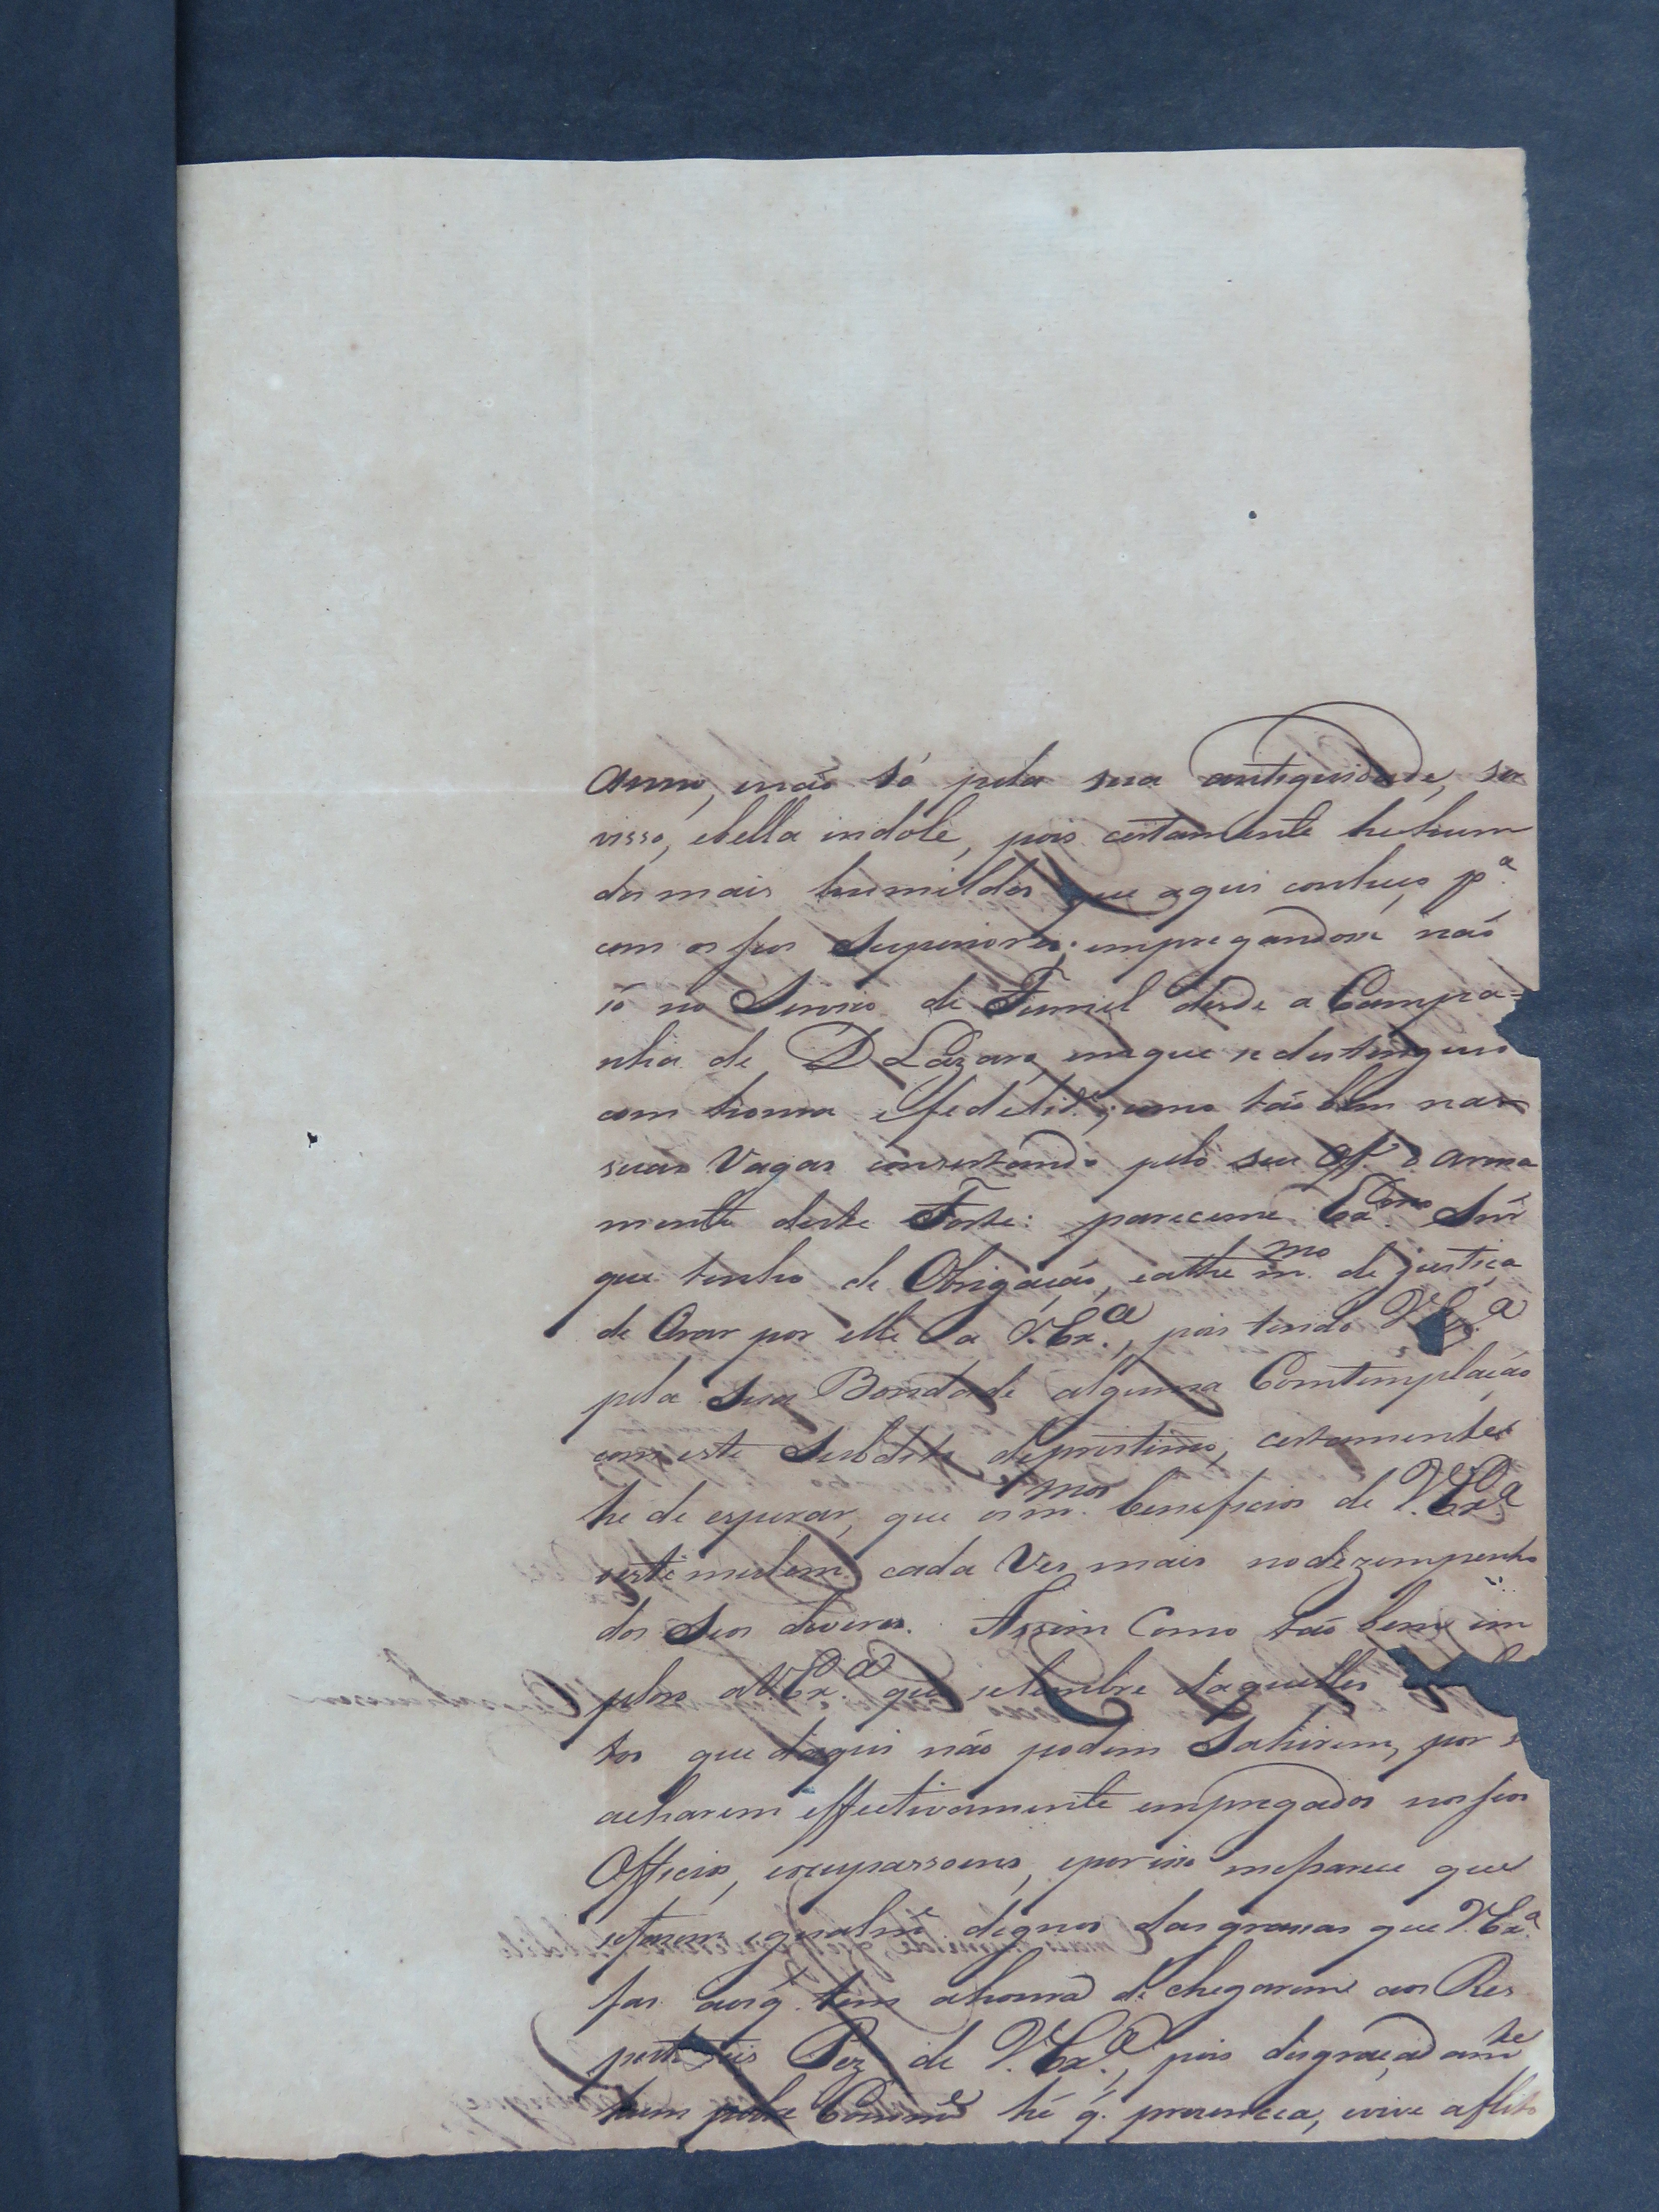 anno, enaõ só pela sua antiguidade, ser
visso, ebella indole, pois certamente he hum
dos mais humildes que aqui conheço pª
com os seos Superiores; empregandose naõ
só no Servico de Funil desde a Campa=
nha de D Lazaro, emque se destinguio
com honra efedelidᵉ; como taõ bem nas
suas Vagas consertando pelo seu Off.º o arma
mento deste Forte: pareceme Exᵐᵒ Snr
que tenho de Obrigaçaõ, eathe m.ᵐᵒ de justiça
de Orar por elle a V.Exª, pois tendo V.Exª
pela sua Bondade alguma Comtemplaçaõ
com este Subdito deprestimo, certamente
he de esperar, que os m.ᵐᵒˢ beneficios de V.Exª
estimulem cada Ves mais nodezempenho
dos Seos deveres. Assim Como taõ bem im
ploro aV.Exª que selembre daquelles
tos que daqui naõ podem Sahirem, por s
acharem effectivamente empregados nos seos
Officios, eocupassoens, eporisso meparece que
sefasem egualmᵉ dignos das grassas que V.Exª
fas aosq. tem ahonra de chegarem aos Res
peitaveis Pez de V.Exª, pois disgraçadamᵗᵉ
hum pobre Commᵉ hé q. prezencea, evive aflito